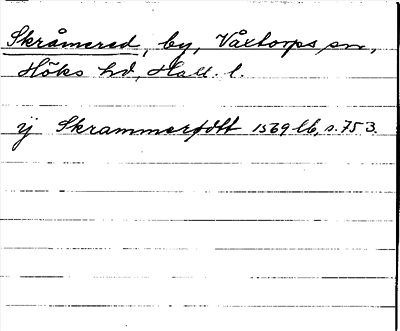 Skråmered, by, Våxtorps sn,
Höks hd, Hall. l.
ij Skrammerødtt 1569 lb, s. 753.